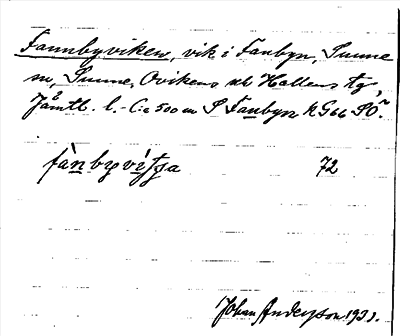 Fannbyviken, vik i Fanbyn, Sunne
sn, Sunne, Ovikens och Hallens tg,
Jämtl. l. - C:a 500 m S Fanbyn kG66 SO.
fànbyvi̇̀tja 72
Johan Anderson 1931.